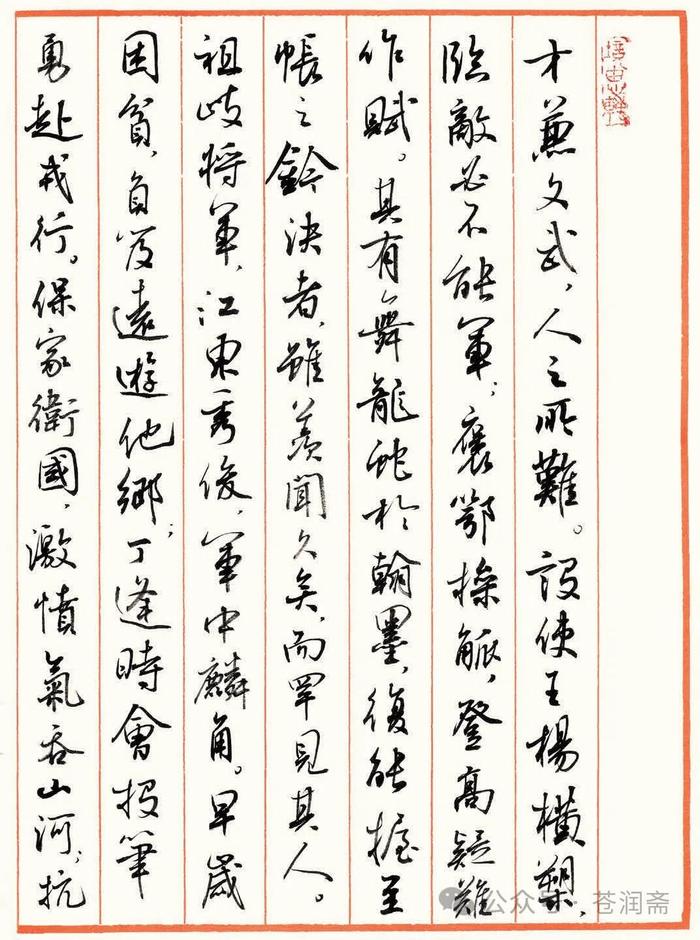 才兼文武，人之所難。設使王楊橫槊，
臨敵必不能軍；褒鄂操觚，登高疑難
作賦。其有舞龍蛇於翰墨，復能握玉
帳之鈴決者，雖羨聞久矣，而罕見其人。
祖歧將軍，江東秀俊，軍中麟角。早歲
困貧，負笈遠遊他鄉；丁逢時會投筆
勇赴戎行。保家衛國，激憤氣吞山河；抗
公众号·苍润斋